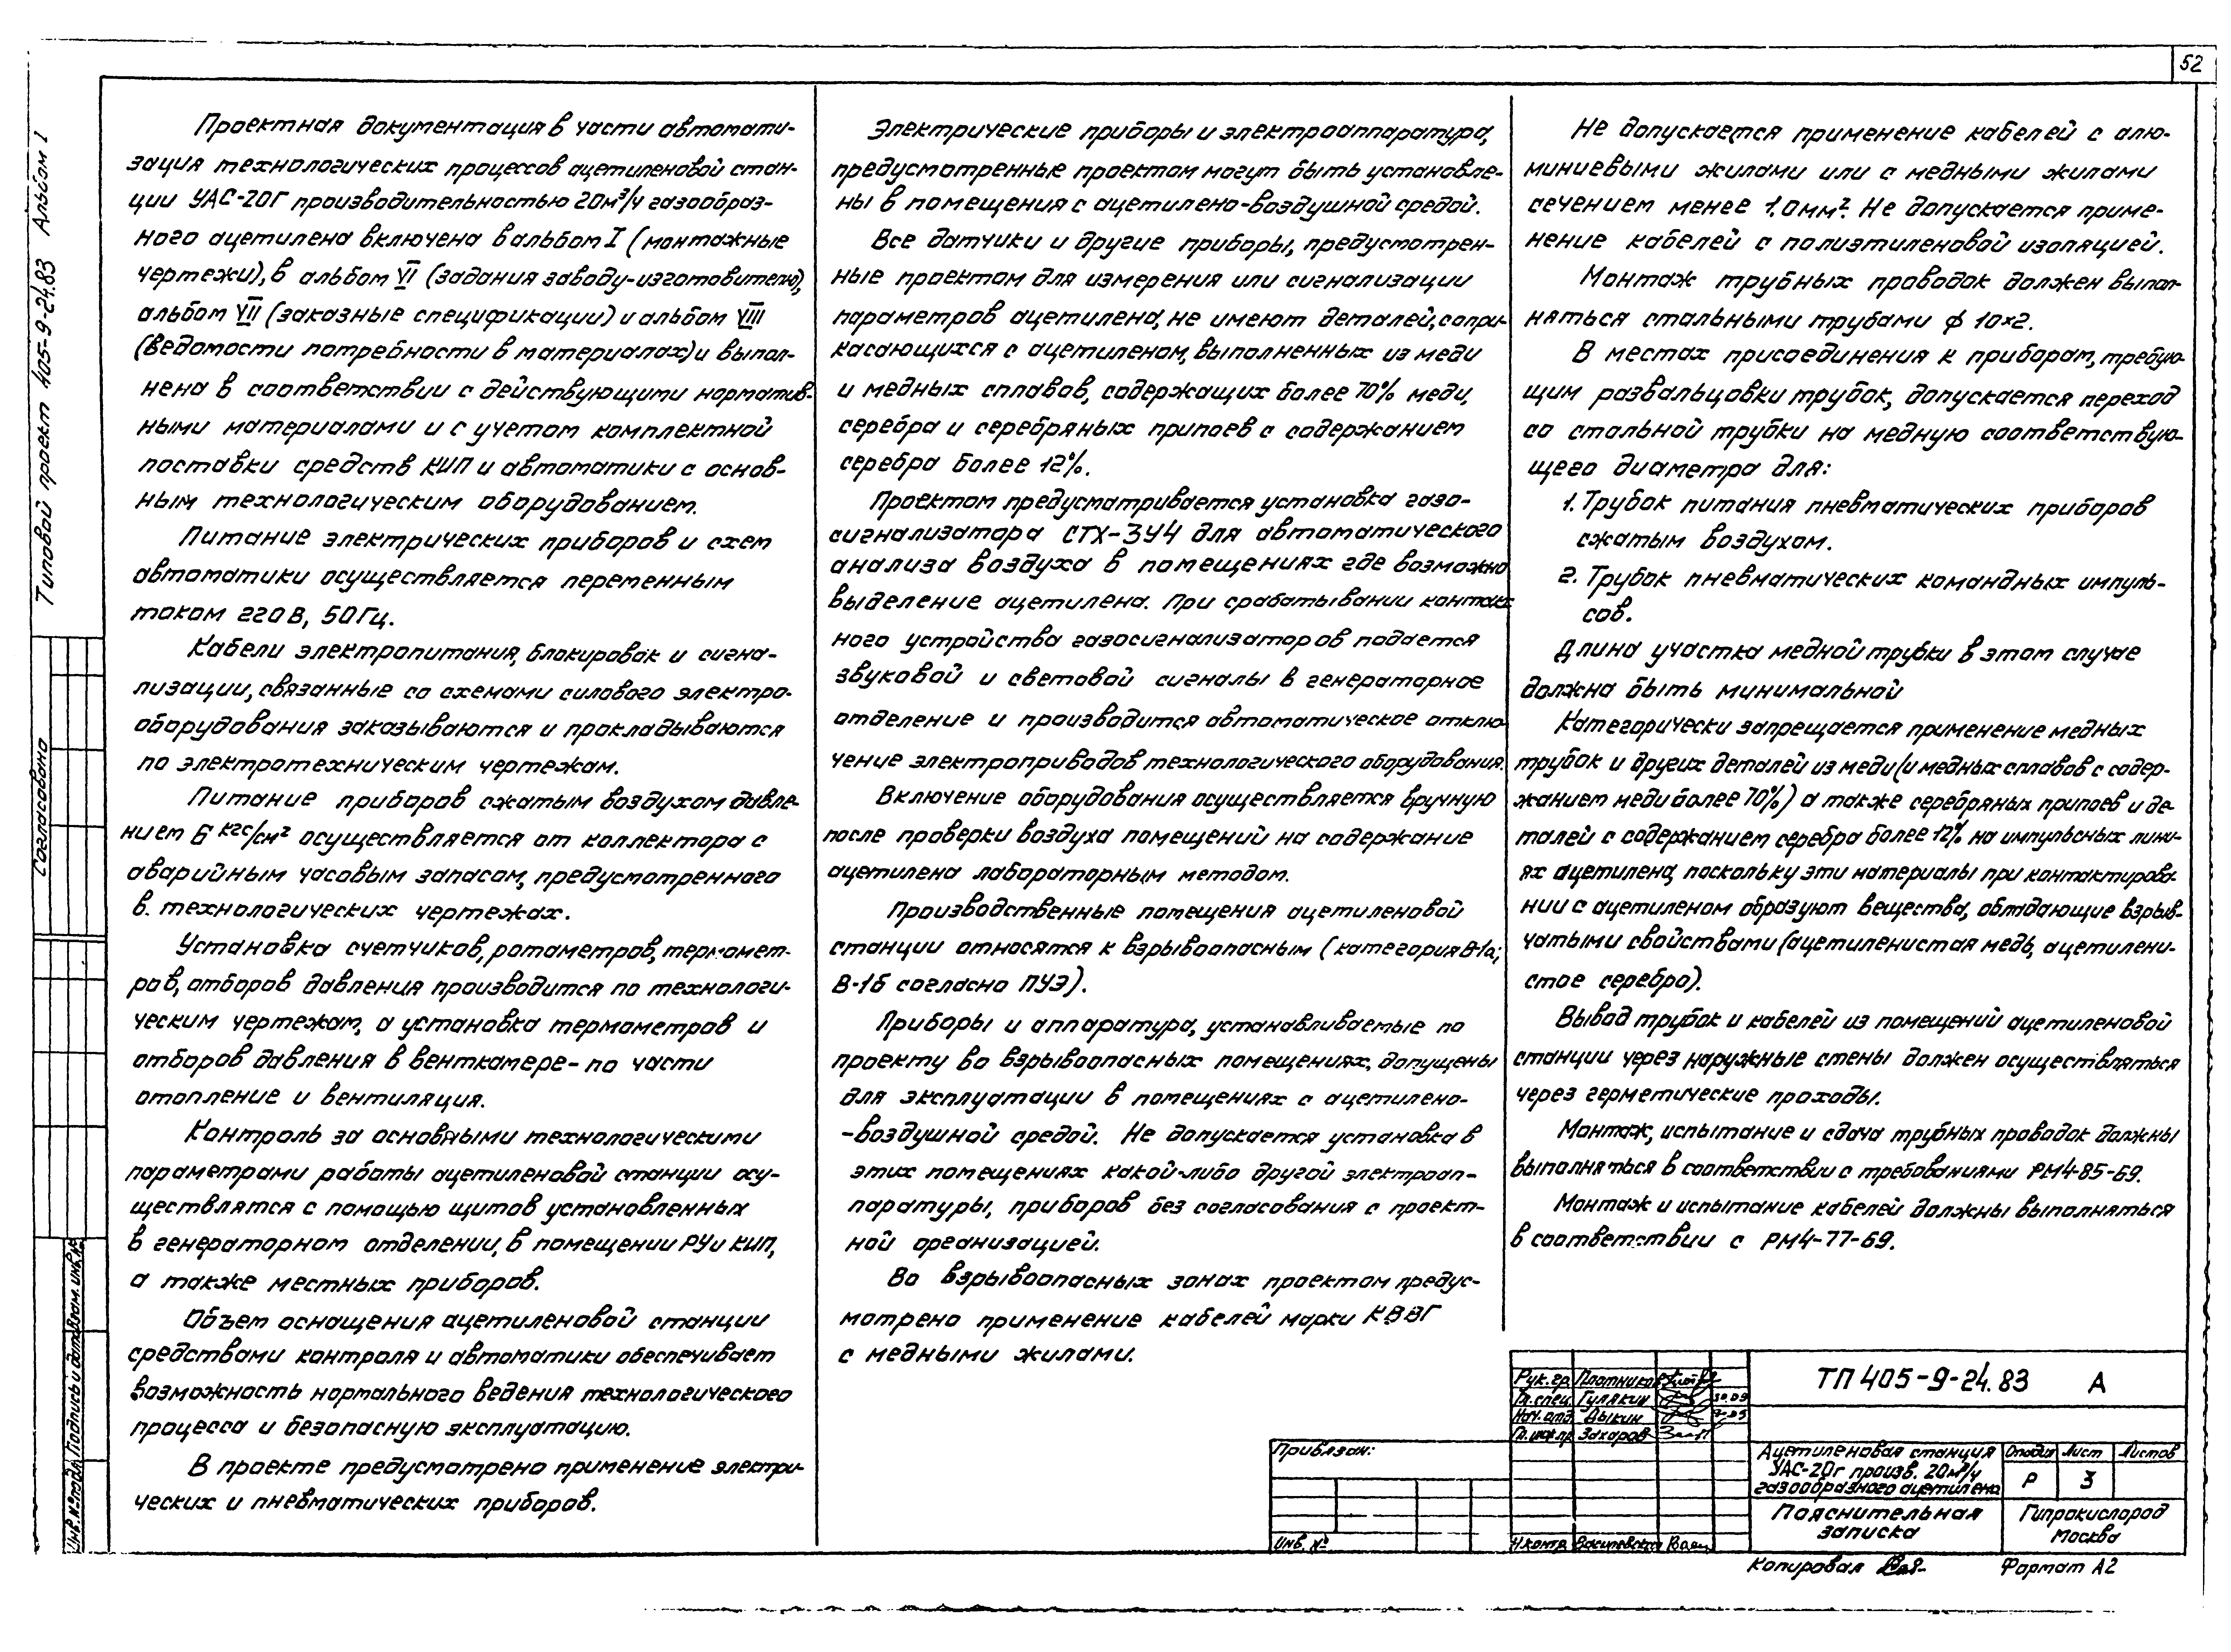 52
Типовой проект 405-9-24.83 Альбом I
Проектная документация в части автомати-
зация технологических процессов ацетиленовой стан-
ции УАС-20Г производительностью 20м³/ч газообраз-
ного ацетилена включена в альбом I (монтажные
чертежи), в альбом VI (задания заводу-изготовителю),
альбом VII (заказные спецификации) и альбом VIII
(ведомости потребности в материалах) и выпол-
нена в соответствии с действующими норматив-
ными материалами и с учетом комплектной
поставки средств КИП и автоматики с основ-
ным технологическим оборудованием.
Питание электрических приборов и схем
автоматики осуществляется переменным
током 220 В, 50 Гц.
Кабели электропитания, блокировок и сигна-
лизации, связанные со схемами силового электро-
оборудования заказываются и прокладываются
по электротехническим чертежам.
Питание приборов сжатым воздухом давле-
нием 6 кгс/см² осуществляется от коллектора с
аварийным часовым запасом, предусмотренного
в. технологических чертежах.
Установка счетчиков, ротаметров, термомет-
ров, отборов давления производится по технологи-
ческим чертежам, а установка термометров и
отборов давления в венткамере - по части
отопление и вентиляция.
Контроль за основными технологическими
параметрами работы ацетиленовой станции осу-
ществлятся с помощью щитов установленных
в генераторном отделении, в помещении РУ и КИП,
а также местных приборов.
Объем оснащения ацетиленовой станции
средствами контроля и автоматики обеспечивает
возможность нормального ведения технологического
процесса и безопасную эксплуатацию.
В проекте предусмотрено применение электри-
ческих и пневматических приборов.
Электрические приборы и электроаппаратура,
предусмотренные проектом могут быть установле-
ны в помещения с ацетилено-воздушной средой.
Все датчики и другие приборы, предусмотрен-
ные проектом для измерения или сигнализации
параметров ацетилена, не имеют деталей, сопри-
касающихся с ацетиленом, выполненных из меди
и медных сплавов, содержащих более 70% меди,
серебра и серебряных припоев с содержанием
серебра более 12%.
Проектом предусматривается установка газо-
сигнализатора СТХ-3У4 для автоматического
анализа воздуха в помещениях где возможно
выделение ацетилена. При срабатывании контакт
ного устройства газосигнализаторов подается
звуковой и световой сигналы в генераторное
отделение и производится автоматическое отклю-
чение электроприводов технологического оборудования.
Включение оборудования осуществляется вручную
после проверки воздуха помещений на содержание
ацетилена лабораторным методом.
Производственные помещения ацетиленовой
станции относятся к взрывоопасным (категория В-1а;
В-1б согласно ПУЭ).
Приборы и аппаратура, устанавливаемые по
проекту во взрывоопасных помещениях, допущены
для эксплуатации в помещениях с ацетилено-
-воздушной средой. Не допускается установка в
этих помещениях какой-либо другой электроап-
паратуры, приборов без согласования с проект-
ной организацией.
Во взрывоопасных зонах проектом предус-
мотрено применение кабелей марки КВВГ
с медными жилами.
Не допускается применение кабелей с алю-
миниевыми жилами или с медными жилами
сечением менее 1,0мм². Не допускается приме-
нение кабелей с полиэтиленовой изоляцией.
Монтаж трубных проводок должен выпол-
няться стальными трубами ф 10×2.
В местах присоединения к приборам, требую-
щим развальцовки трубок, допускается переход
со стальной трубки на медную соответствую-
щего диаметра для:
1. Трубок питания пневматических приборов
сжатым воздухом.
2. Трубок пневматических командных импуль-
сов.
Длина участка медной трубки в этом случае
должна быть минимальной
Категорически запрещается применение медных
трубок и других деталей из меди (и медных сплавов с содер-
жанием меди более 70%) а также серебряных припоев и де-
талей с содержанием серебра более 12% на импульсных лини-
ях ацетилена, поскольку эти материалы при контактирова-
нии с ацетиленом образуют вещества, обладающие взрыв-
чатыми свойствами (ацетиленистая медь, ацетилени-
стое серебро).
Вывод трубок и кабелей из помещений ацетиленовой
станции через наружные стены должен осуществляться
через герметические проходы.
Монтаж, испытание и сдача трубных проводок должны
выполняться в соответствии с требованиями РМ4-85-69.
Монтаж и испытание кабелей должны выполняться
в соответствии с РМ4-77-69.
Согласовано
Инв. № подл. Подпись и дата Взам. инв. №
Привязан:
Инв. №
Рук. гр. Плотников
Гл. спец. Гулякин
Нач. отд. Дыкин
Гл. инж. пр. Захаров
Н. контр.
ТП 405-9-24.83 А
Ацетиленовая станция
УАС-20г произв. 20м³/ч
газообразного ацетилена
Стадия Лист Листов
Р 3
Пояснительная
записка
Гипрокислород
Москва
Копировал
Формат А2